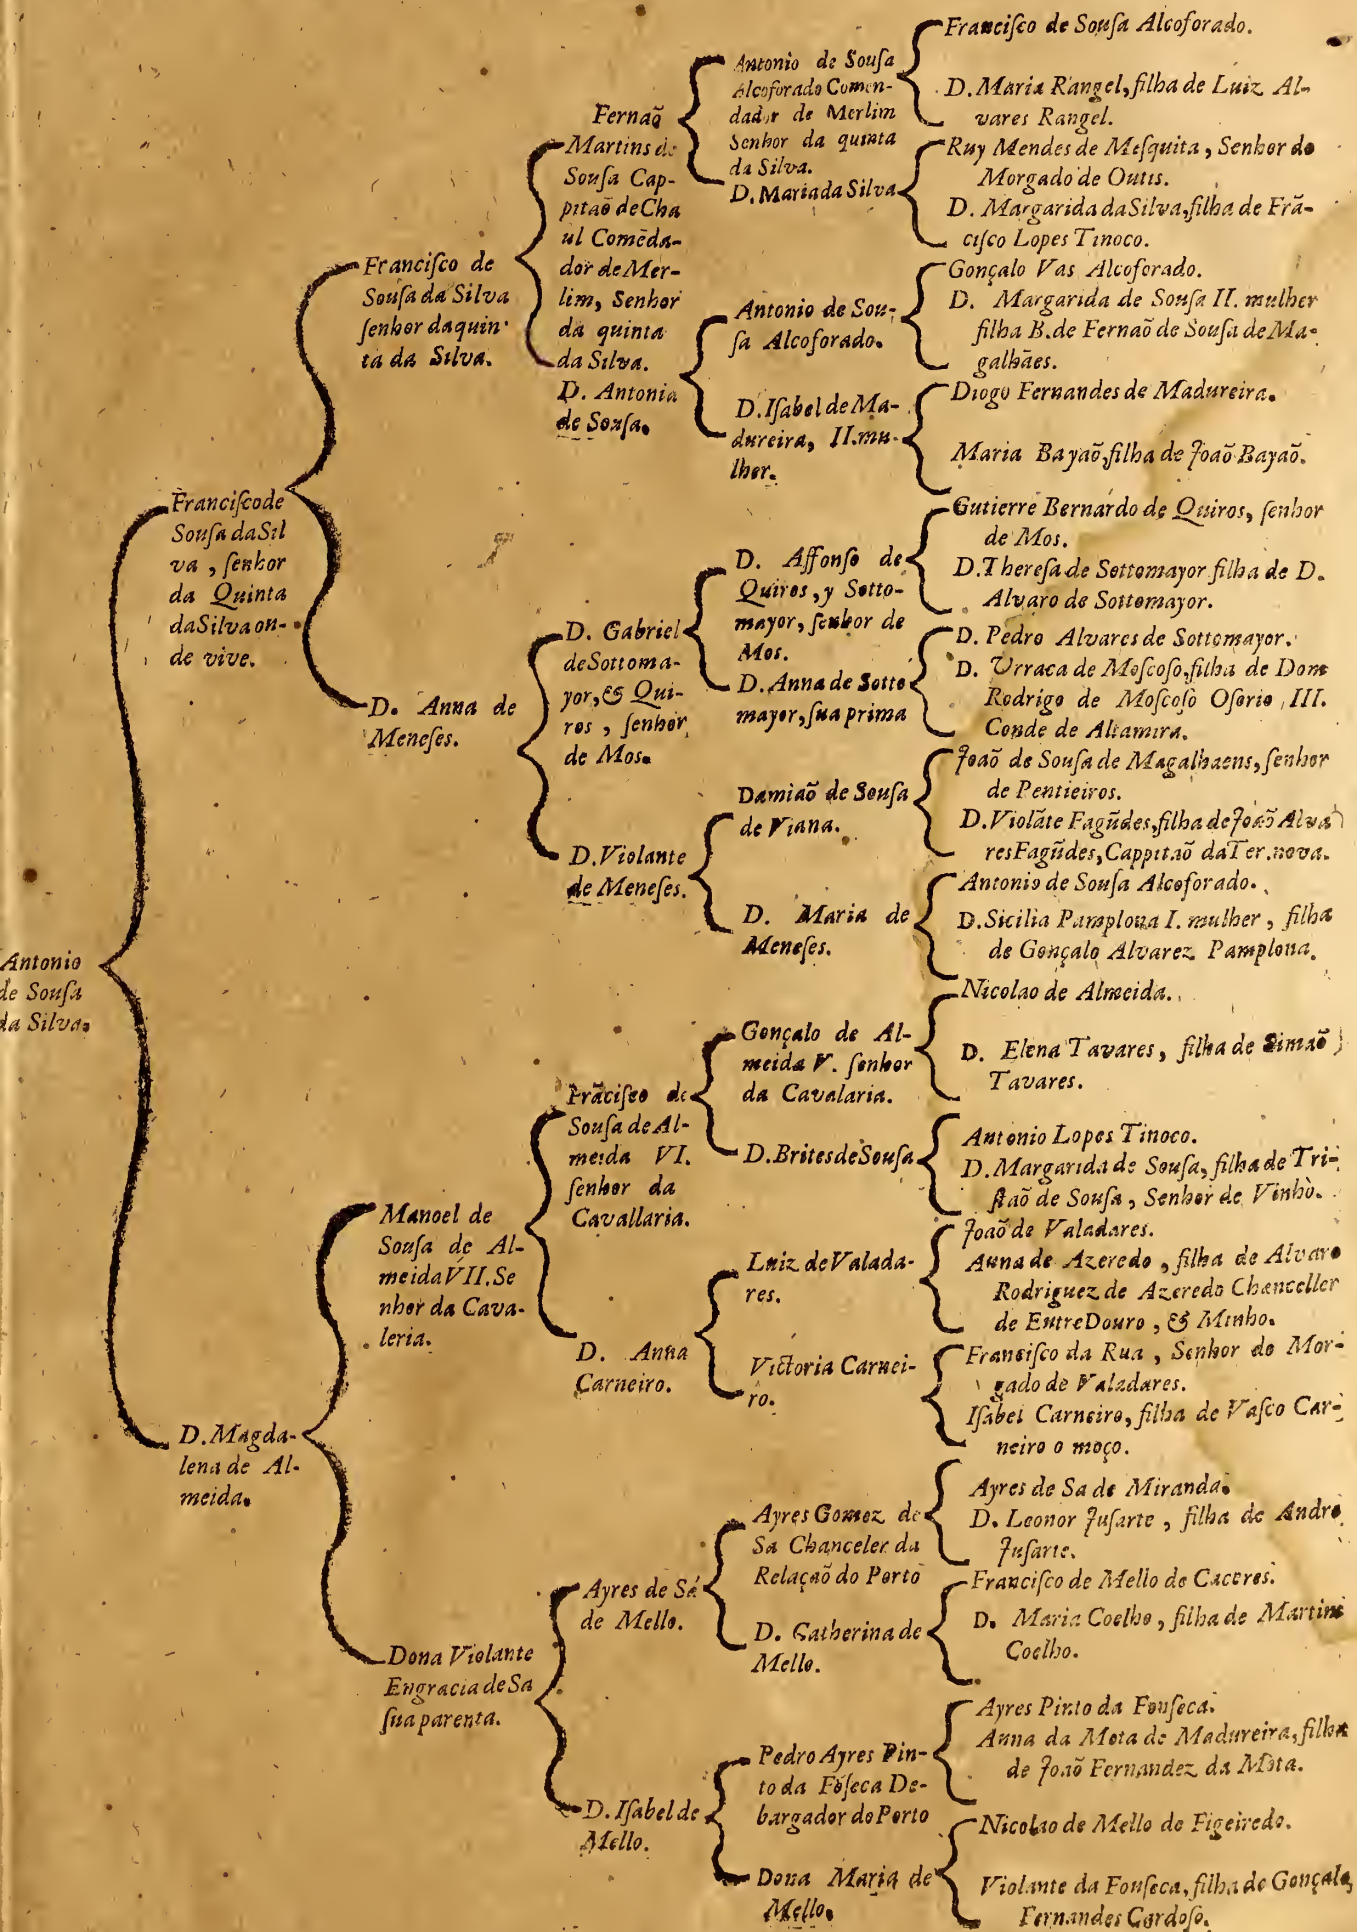 Antonio
de Souſa
da Silva.
Franciſco de
Souſa da Sil
va , ſenhor
da Quinta
da Silva on-
de vive.
D. Magda-
lena de Al-
meida.
Franciſco de
Souſa da Silva
ſenhor da quin-
ta da Silva.
D. Anna de
Meneſes.
Manoel de
Souſa de Al-
meida VII. Se
nhor da Cava-
leria.
Dona Violante
Engracia de Sa
ſua parenta.
Fernaõ
Martins de
Souſa Cap-
pitaõ de Cha
ul Comẽda-
dor de Mer-
lim, Senhor
da quinta
da Silva.
D. Antonia
de Souſa.
D. Gabriel
de Sottoma-
yor, & Qui-
ros , ſenhor
de Mos.
D. Violante
de Meneſes.
Frãciſco de
Souſa de Al-
meida VI.
ſenhor da
Cavallaria.
D. Anna
Carneiro.
Ayres de Sá
de Mello.
D. Iſabel de
Mello.
Antonio de Souſa
Alcoforado Comen-
dador de Merlim
Senhor da quinta
da Silva.
D. Maria da Silva
Antonio de Sou-
ſa Alcoforado.
D. Iſabel de Ma-
dureira, II. mu-
lher.
D. Affonſo de
Quiros, y Sotto-
mayor, ſenhor de
Mos.
D. Anna de Sotto
mayor, ſua prima
Damiaõ de Souſa
de Viana.
D. Maria de
Meneſes.
Gonçalo de Al-
meida V. ſenhor
da Cavalaria.
D. Brites de Souſa
Luiz de Valada-
res.
Victoria Carnei-
ro.
Ayres Gomez de
Sa Chanceler da
Relaçaõ do Porto
D. Catherina de
Mello.
Pedro Ayres Pin-
to da Fõſeca De-
bargador do Porto
Dona Maria de
Mello.
Franciſco de Souſa Alcoforado.
D. Maria Rangel, filha de Luiz Al-
vares Rangel.
Ruy Mendes de Meſquita , Senhor do
Morgado de Outis.
D. Margarida da Silva, filha de Frã-
ciſco Lopes Tinoco.
Gonçalo Vas Alcoforado.
D. Margarida de Souſa II. mulher
filha B. de Fernaõ de Souſa de Ma-
galhães.
Diogo Fernandes de Madureira.
Maria Bayaõ, filha de Joaõ Bayaõ.
Gutierre Bernardo de Quiros, ſenhor
de Mos.
D. Thereſa de Sottomayor filha de D.
Alvaro de Sottomayor.
D. Pedro Alvares de Sottomayor.
D. Urraca de Moſcoſo, filha de Dom
Rodrigo de Moſcoſo Oſorio , III.
Conde de Altamira.
Joaõ de Souſa de Magalhaens, ſenhor
de Pentieiros.
D. Violãte Fagũdes, filha de Joaõ Alva
res Fagũdes, Cappitaõ da Ter. nova.
Antonio de Souſa Alcoforado.
D. Sicilia Pamplona I. mulher , filha
de Gonçalo Alvarez Pamplona.
Nicolao de Almeida.
D. Elena Tavares , filha de Simaõ
Tavares.
Antonio Lopes Tinoco.
D. Margarida de Souſa, filha de Tri-
ſtaõ de Souſa , Senhor de Vinhò.
Joaõ de Valadares.
Anna de Azeredo , filha de Alvaro
Rodriguez de Azeredo Chanceller
de Entre Douro , & Minho.
Franciſco da Rua , Senhor do Mor-
gado de Valadares.
Iſabel Carneiro, filha de Vaſco Car-
neiro o moço.
Ayres de Sa de Miranda.
D. Leonor Juſarte , filha de Andre
Juſarte.
Franciſco de Mello de Caceres.
D. Maria Coelho , filha de Martim
Coelho.
Ayres Pinto da Fonſeca.
Anna da Mota de Madureira, filha
de Joaõ Fernandez da Mota.
Nicolao de Mello de Figeiredo.
Violante da Fonſeca, filha de Gonçalo
Fernandes Cardoſo.